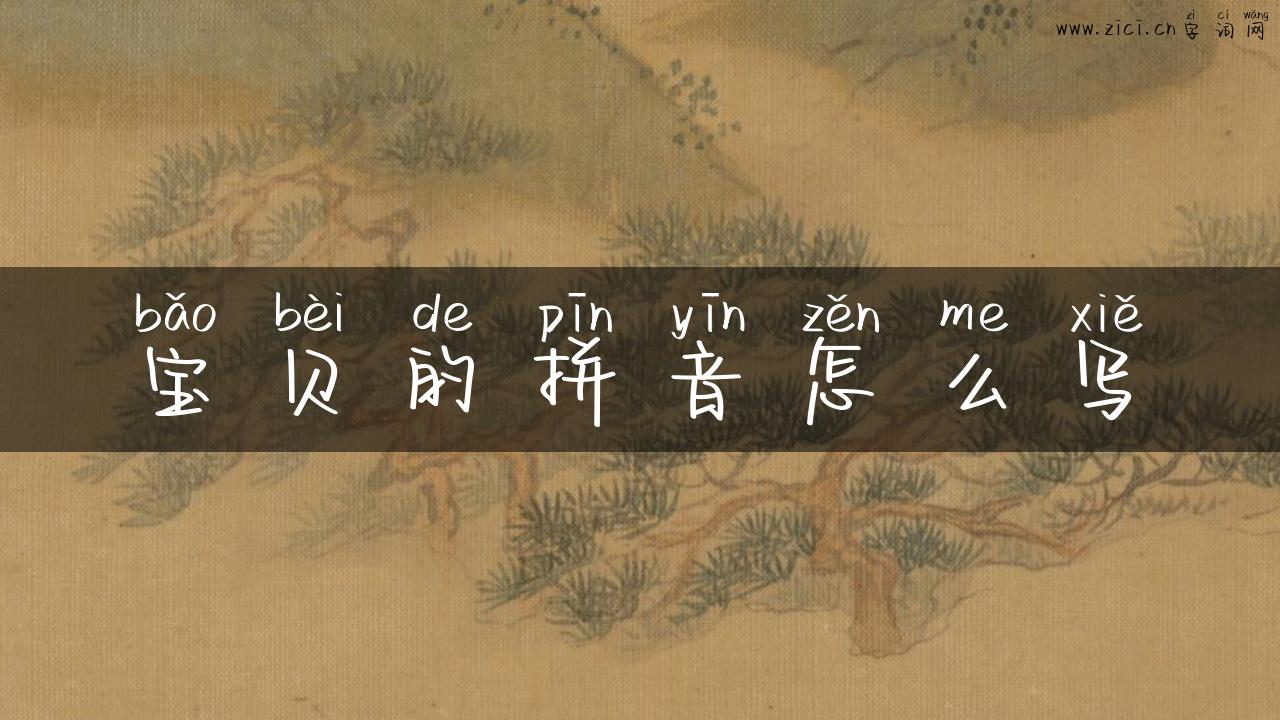 zì cí wǎng
www.zici.cn 字词网
bǎo bèi de pīn yīn zěn me xiě
宝贝的拼音怎么写